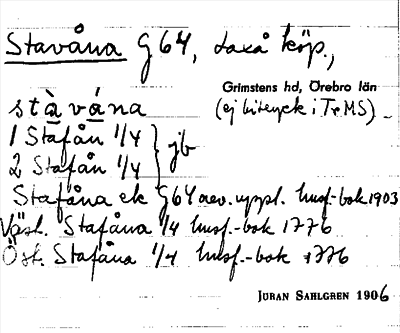 Stavåna G 64, også köp.,
Grimstens hd, Örebro län
stàvána (ej bitryck i TrMS)
1 Stafån 1/4 } jb
2 Stafån 1/4
Stafåna ek G64 aev. uppl. husf.-bok 1903
Väst. Stafåna 1/4 husf.-bok 1776
Öst. Stafåna 1/4 husf.-bok 1776
JÖRAN SAHLGREN 1906